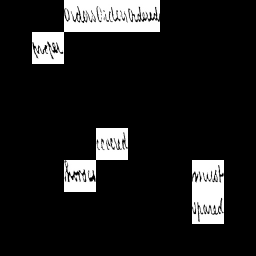 Orders Orders Ordered
proper
covered
must
spared